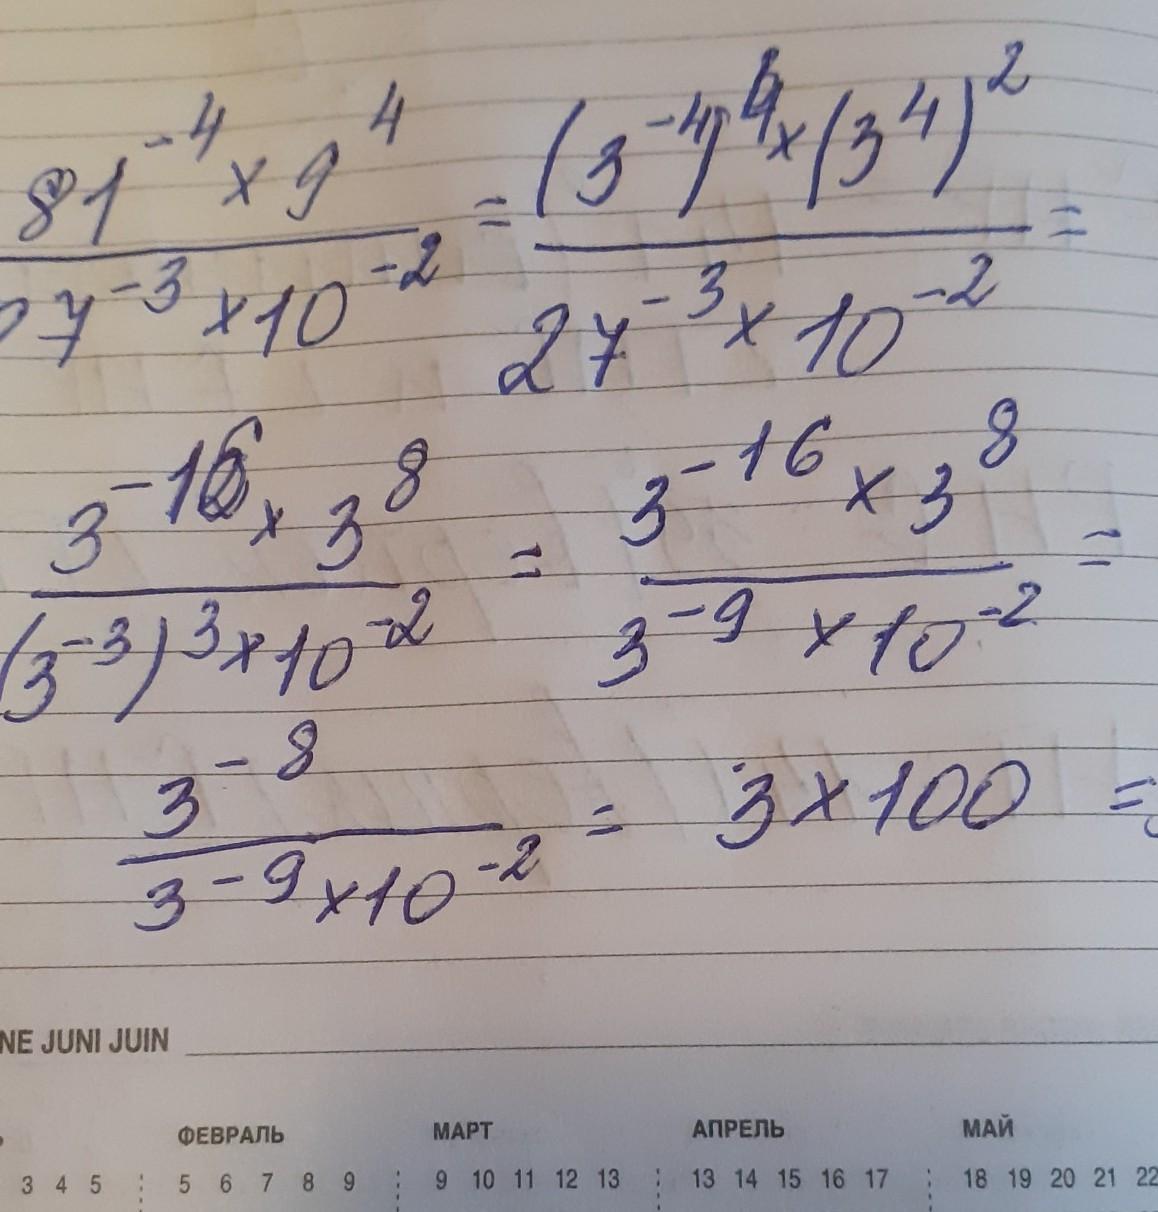 81⁻⁴ × 9⁴ / 27⁻³ × 10⁻² = (3⁻⁴)⁴ × (3⁴)² / 27⁻³ × 10⁻² =
3⁻¹⁶ × 3⁸ / (3⁻³)³ × 10⁻² = 3⁻¹⁶ × 3⁸ / 3⁻⁹ × 10⁻² =
3⁻⁸ / 3⁻⁹ × 10⁻² = 3 × 100 =
NE JUNI JUIN
ФЕВРАЛЬ МАРТ АПРЕЛЬ МАЙ
3 4 5 5 6 7 8 9 9 10 11 12 13 13 14 15 16 17 18 19 20 21 22